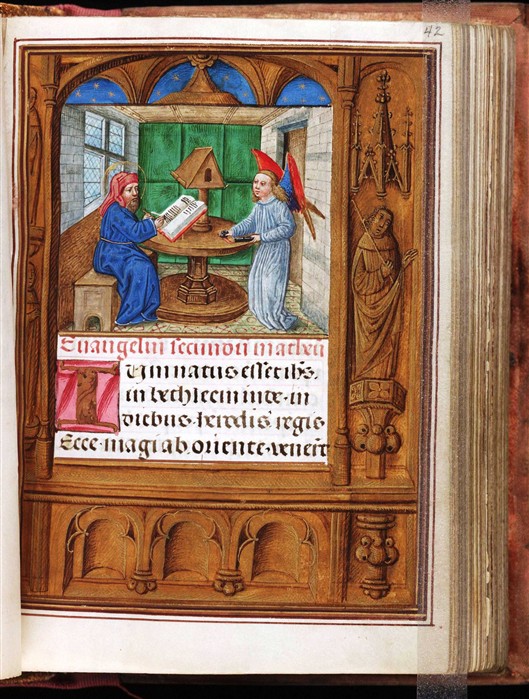 42
Euangeliū secundū matheū
Cum natus esset ihs
in bethleem iude in
diebus herodis regis
Ecce magi ab oriente venerūt